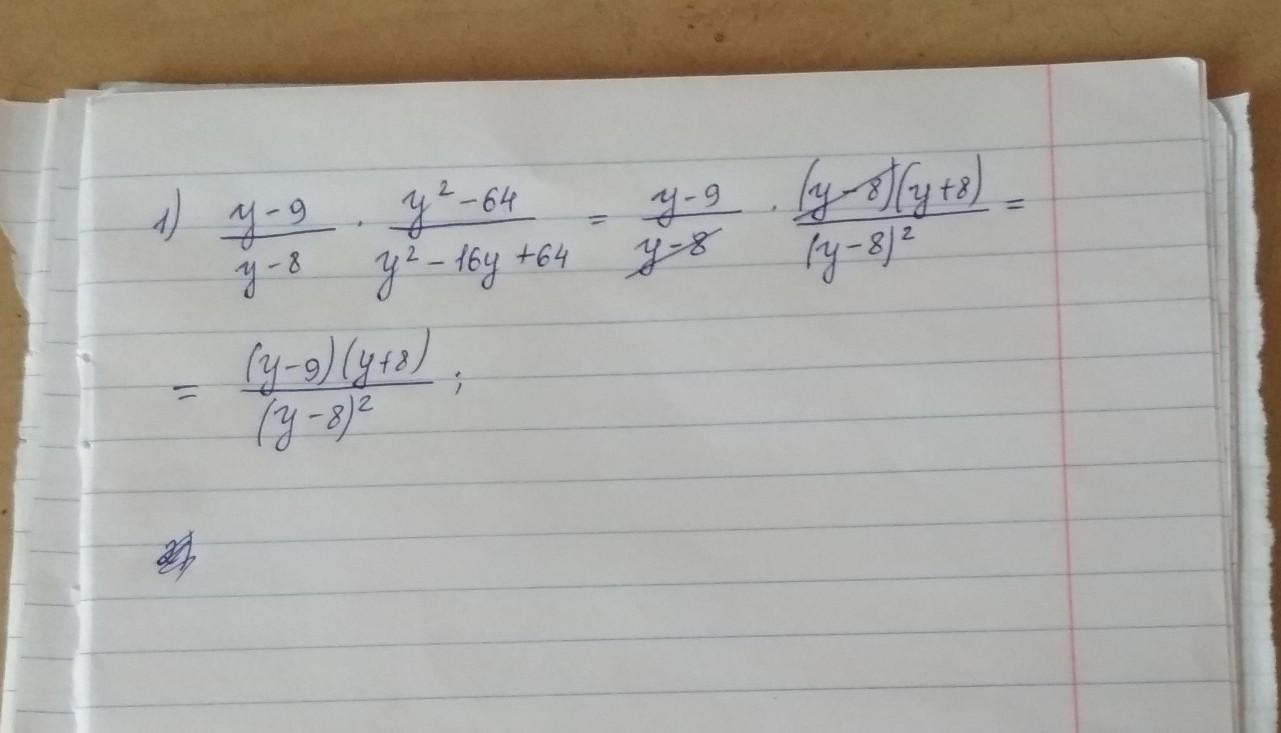 1) (y-9)/(y-8) · (y²-64)/(y²-16y+64) = (y-9)/(y-8) · ((y-8)(y+8))/((y-8)²) =
= ((y-9)(y+8))/((y-8)²) ;